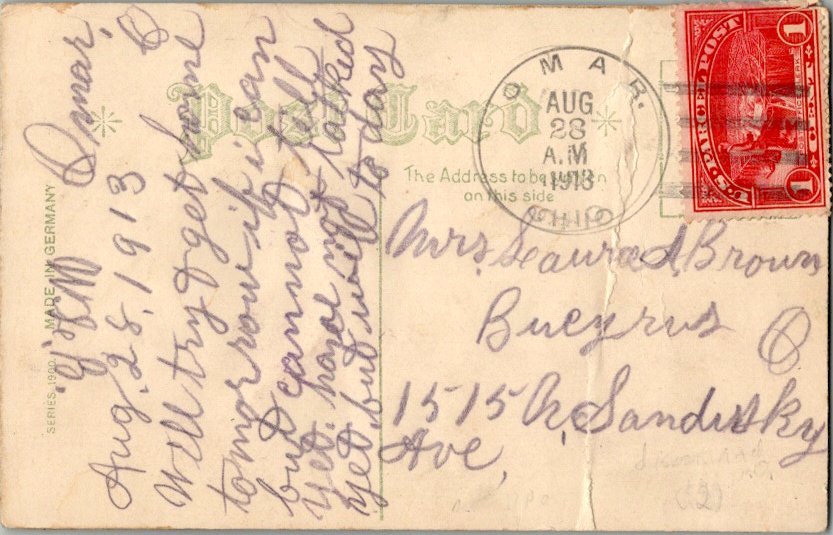 Post Card
The Address to be written
on this side
SERIES 1900 MADE IN GERMANY
OMAR.
AUG
28
A.M
1913
OHIO
U.S. PARCEL POST
1 CENT 1
Omar, O
Aug. 28, 1913
Will try & get home
tomorrow if i can
but cannot tell
yet. have not talked
yet, but will to day
Mrs. Laura A Brown
Bucyrus O
1515 N. Sandusky
Ave,
(12)